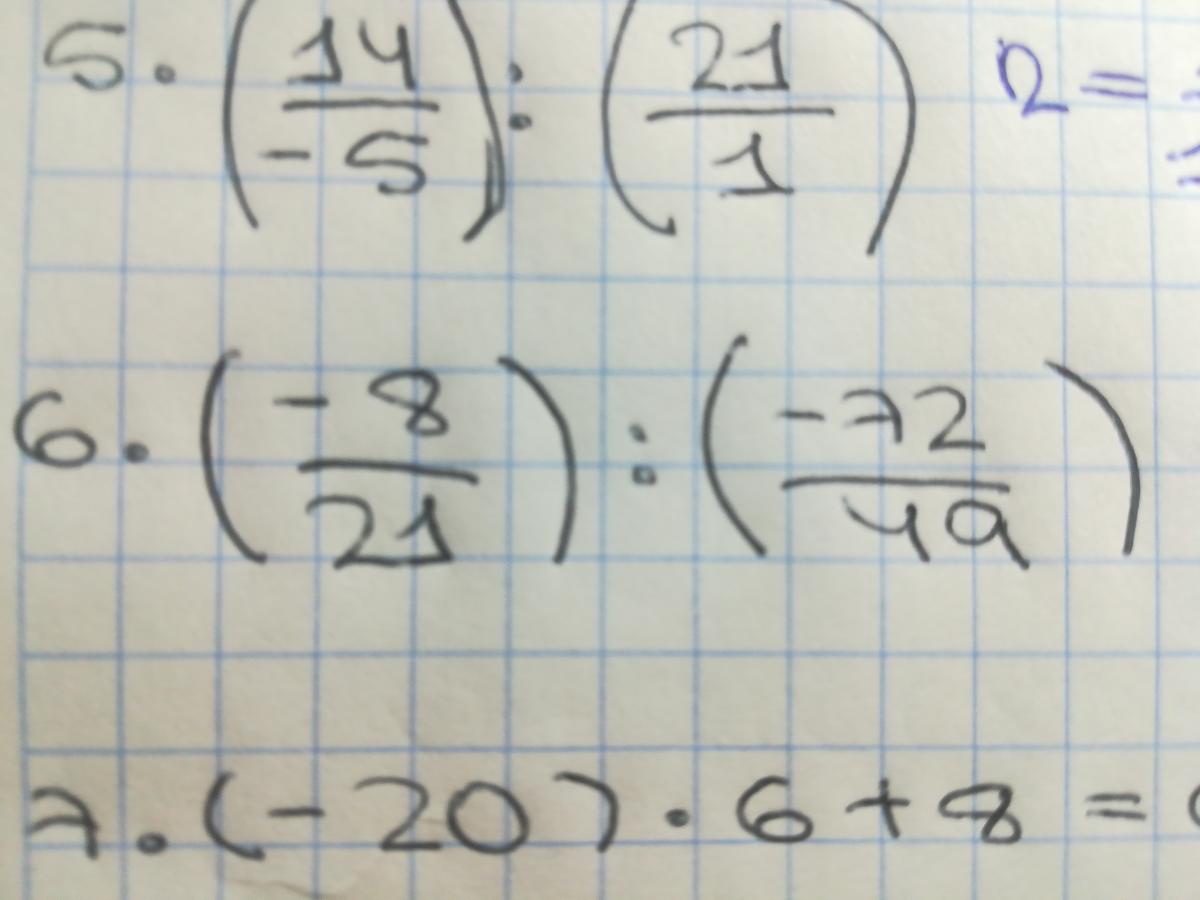 5. (14/-5) : (21/1) R =
6. (-8/21) : (-72/49)
7. (-20) . 6 + 8 =